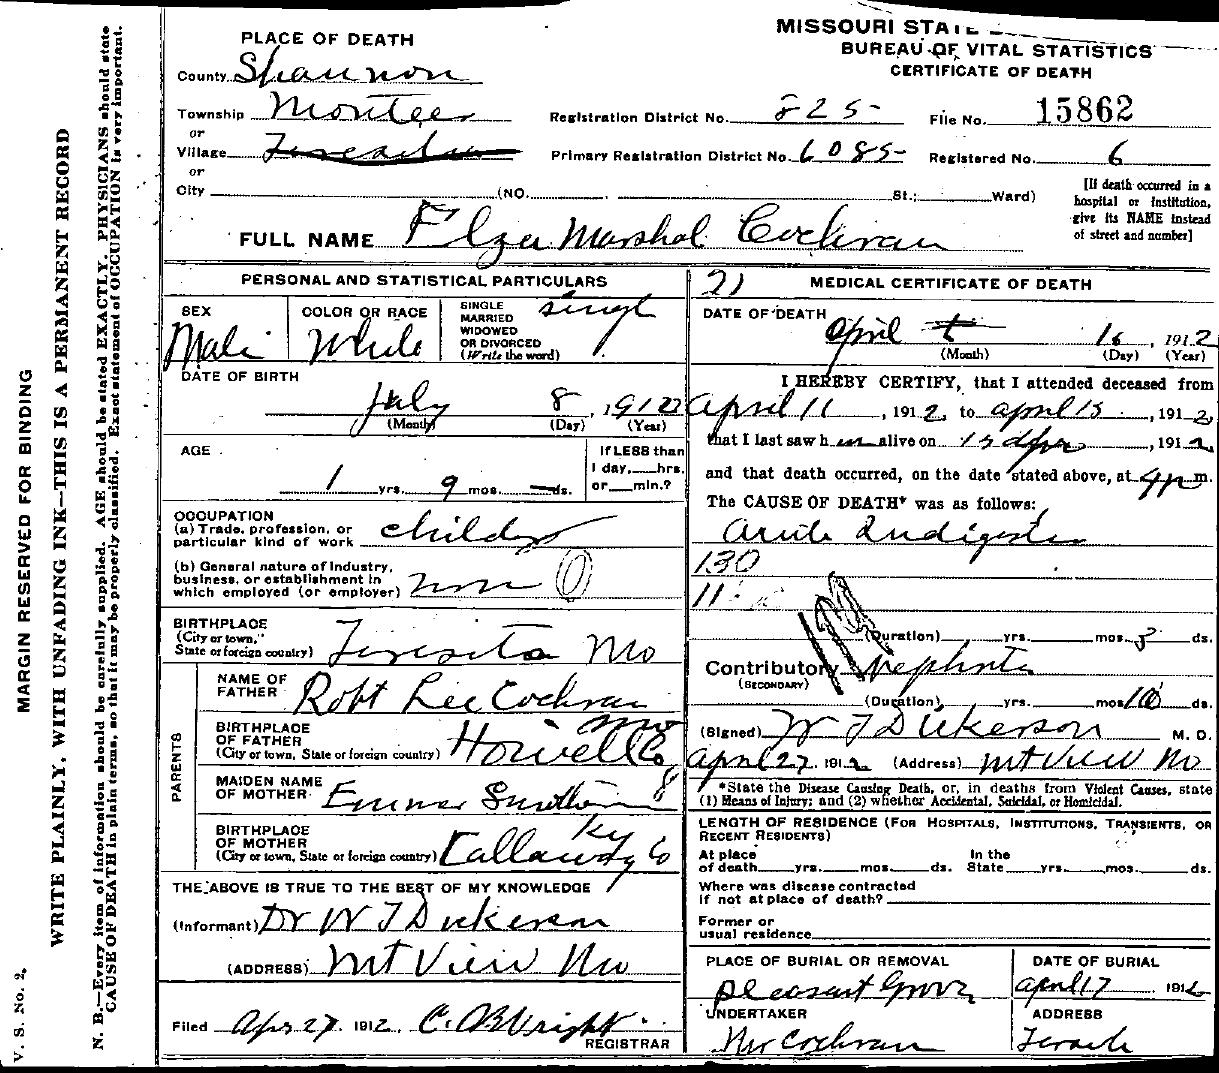 MISSOURI STATE
BUREAU OF VITAL STATISTICS
CERTIFICATE OF DEATH
PLACE OF DEATH
County Shannon
Township Montier
or
Village
or
City (NO. St.; Ward)
Registration District No. 825- File No. 15862
Primary Registration District No. 6085- Registered No. 6
[If death occurred in a
hospital or institution,
give its NAME instead
of street and number]
FULL NAME Elza Marshal Cochran
PERSONAL AND STATISTICAL PARTICULARS
SEX
Male
COLOR OR RACE
White
SINGLE
MARRIED
WIDOWED
OR DIVORCED
(Write the word)
singl
DATE OF BIRTH
July 8, 1910
(Month) (Day) (Year)
AGE
1 yrs. 9 mos. — ds.
If LESS than
1 day, hrs.
or min.?
OCCUPATION
(a) Trade, profession, or
particular kind of work child
(b) General nature of industry,
business, or establishment in
which employed (or employer) non
BIRTHPLACE
(City or town,
State or foreign country) Teresita Mo
PARENTS
NAME OF
FATHER Robt Lee Cochran
BIRTHPLACE
OF FATHER
(City or town, State or foreign country) Howell Co Mo
MAIDEN NAME
OF MOTHER Emma
BIRTHPLACE
OF MOTHER
(City or town, State or foreign country) Callaway Co Ky
THE ABOVE IS TRUE TO THE BEST OF MY KNOWLEDGE
(Informant) Dr W T Dickerson
(ADDRESS) Mt View Mo
Filed Apr 27, 1912. C. A. Wright
REGISTRAR
21 MEDICAL CERTIFICATE OF DEATH
DATE OF DEATH
April 16, 1912
(Month) (Day) (Year)
I HEREBY CERTIFY, that I attended deceased from
April 11, 1912, to april 15, 1912,
that I last saw him alive on 15 Apr, 1912
and that death occurred, on the date stated above, at 4 p m.
The CAUSE OF DEATH* was as follows:
Acute Indigestion
130
11
(Duration) yrs. mos. 3 ds.
Contributory Nephritis
(SECONDARY)
(Duration) yrs. mos. 10 ds.
(Signed) W T Dickerson M. D.
April 27, 1912 (Address) Mt View Mo
*State the Disease Causing Death, or, in deaths from Violent Causes, state
(1) Means of Injury; and (2) whether Accidental, Suicidal, or Homicidal.
LENGTH OF RESIDENCE (FOR HOSPITALS, INSTITUTIONS, TRANSIENTS, OR
RECENT RESIDENTS)
At place
of death yrs. mos. ds.
In the
State yrs. mos. ds.
Where was disease contracted
if not at place of death?
Former or
usual residence
PLACE OF BURIAL OR REMOVAL
Pleasant Grove
DATE OF BURIAL
april 17 1912
UNDERTAKER
Cochran
ADDRESS
MARGIN RESERVED FOR BINDING
WRITE PLAINLY, WITH UNFADING INK—THIS IS A PERMANENT RECORD
N. B.—Every item of information should be carefully supplied. AGE should be stated EXACTLY. PHYSICIANS should state
CAUSE OF DEATH in plain terms, so that it may be properly classified. Exact statement of OCCUPATION is very important.
V. S. No. 2.